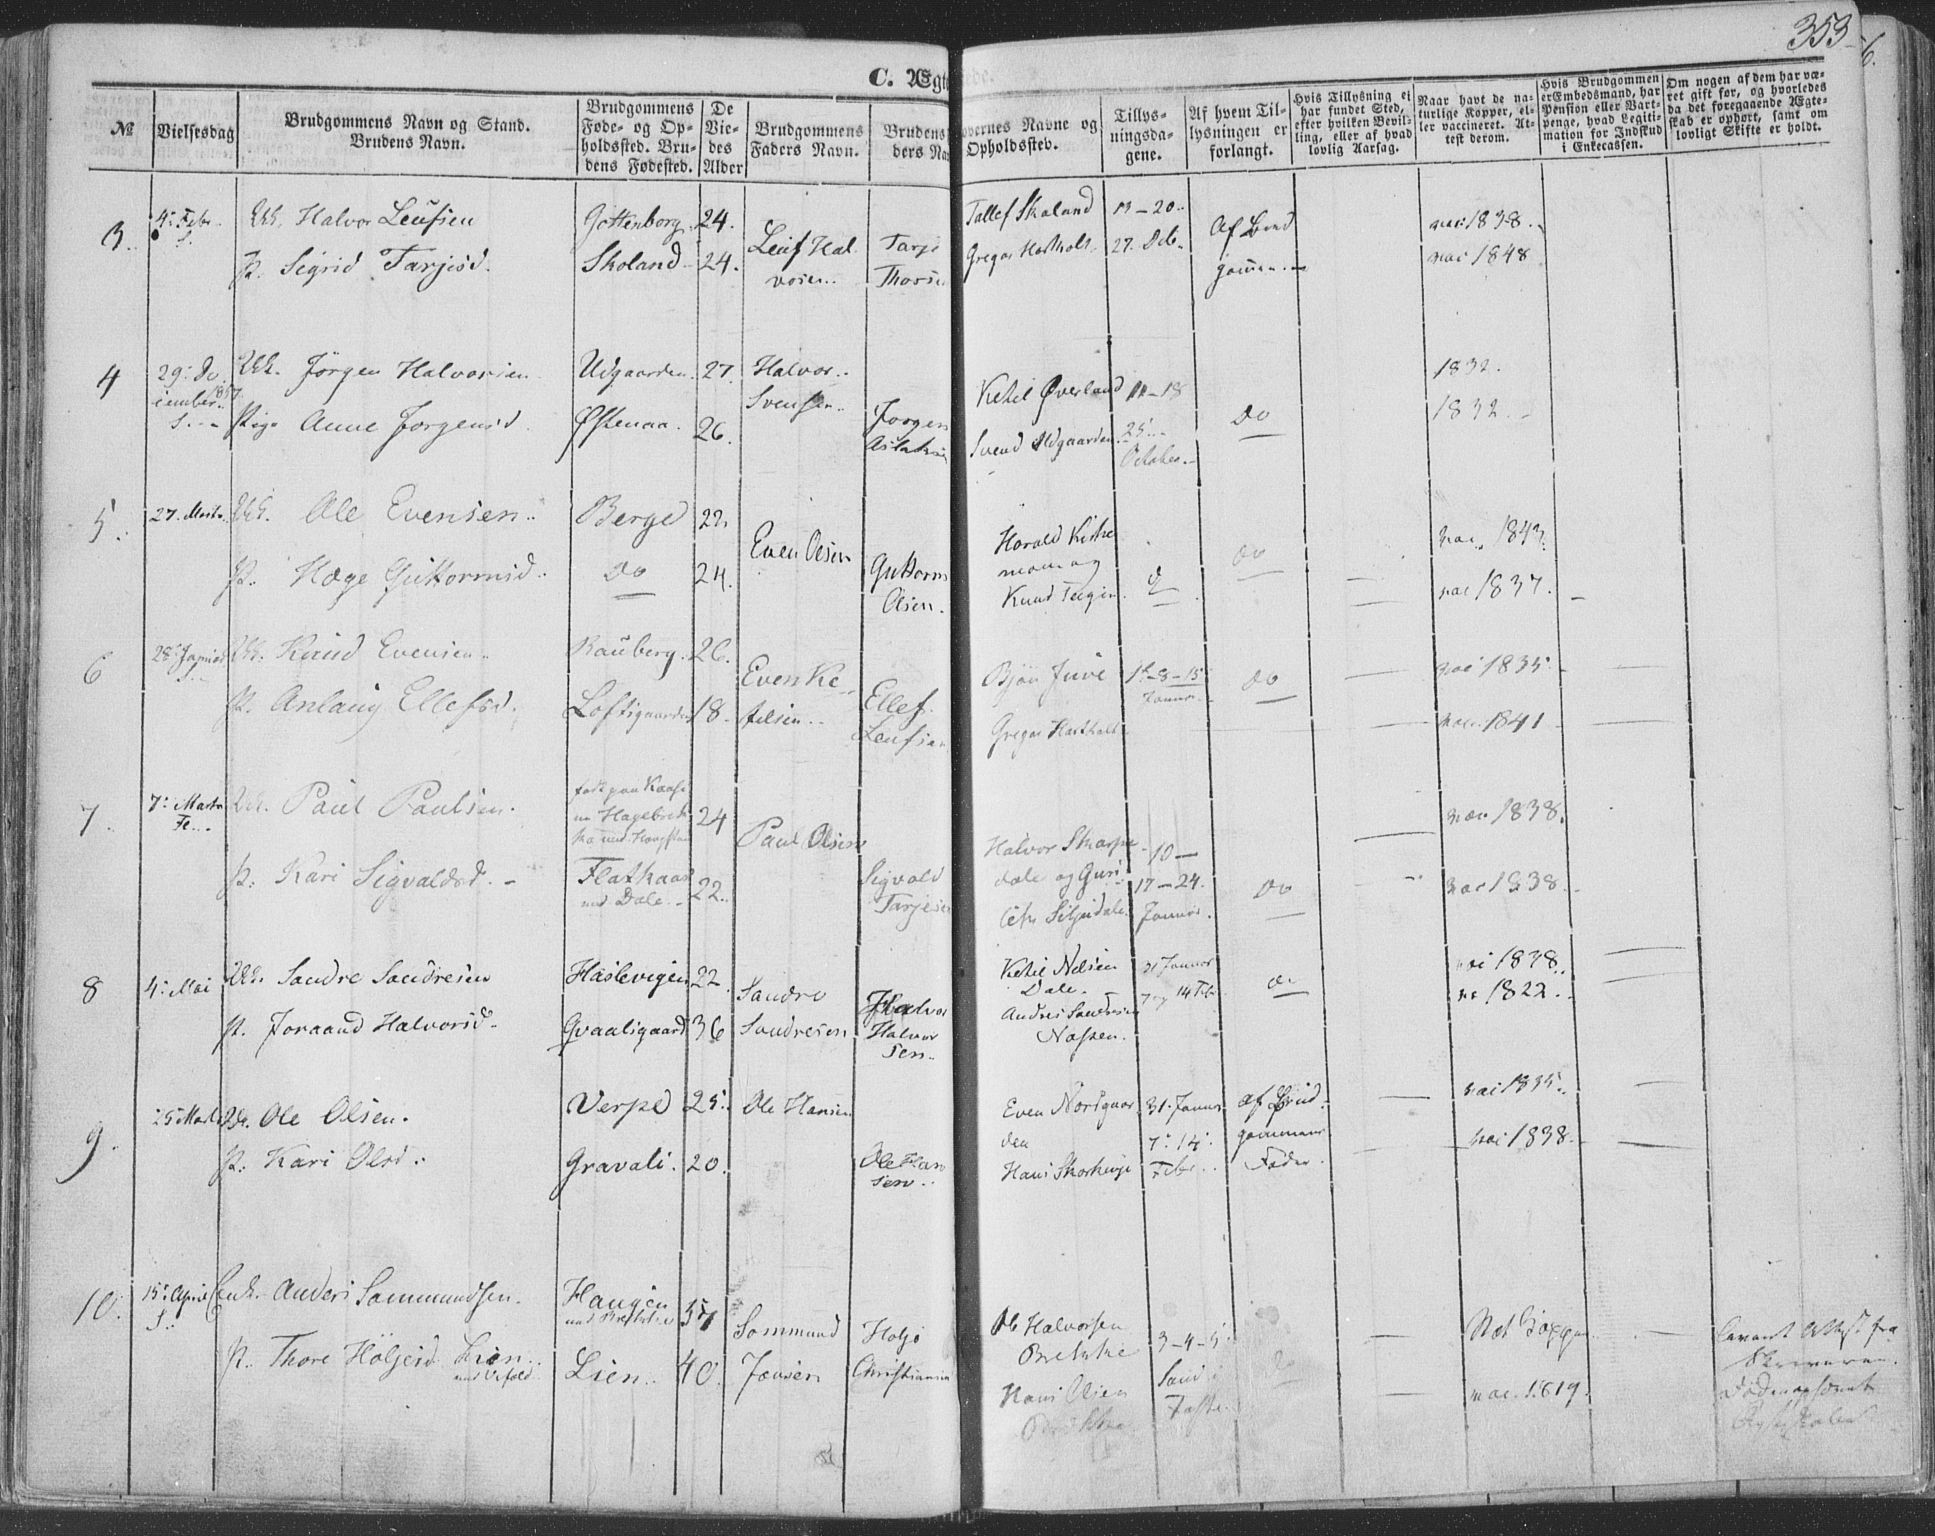 353
C. Ægte
№
Vielsesdag
Brudgommens Navn og Stand.
Brudens Navn.
Brudgommens
Føde- og Op-
holdssted. Bru-
dens Fødested.
De
Vie-
des
Alder
Brudgommens
Faders Navn.
Brudens
ders Nav
overnes Navne og
Opholdssted.
Tillys-
ningsda-
gene.
Af hvem Til-
lysningen er
forlangt.
Hvis Tillysning ei
har fundet Sted,
efter hvilken Bevil-
ling, eller af hvad
lovlig Aarsag.
Naar havt de na-
turlige Kopper, el-
ler vaccineret. At-
test derom.
Hvis Brudgommen
er Embedsmand, har
Pension eller Vart-
penge, hvad Legiti-
mation for Indskud
i Enkecassen.
Om nogen af dem har væ-
ret gift før, og hvorledes
da det foregaaende Ægte-
skab er ophørt, samt om
lovligt Skifte er holdt.
3.
4. Febr.
Halvor Leufsen
Gottenborg
24.
P. Sigrid Tarjesd.
Skoland
24.
Leuf Hal
vosen.
Tarje
Thors
Tallef Skoland
Gregar Hartholt
13-20.
27. Deb.
Af Brud
gommen.
vac 1838.
vac 1848
4
29. De
cember
1857
Jørgen Halvorsen
Udgaarden
27.
Pige Anne Jorgensd.
Østenaa.
26.
Halvor
Svensen
Jorgen
Aslaksen
Ketil Øverland
Svend Udgaarden
11-18
25.
October.
Do
1832.
1832.
5.
27. Marts
Ole Evensen
Berge
22.
P. Hæge Guttormsd.
Do
24.
Even Olsen
Guttorm
Olsen.
Harald Kirke
moen og
Knud Teigen.
Do
vac 1843.
vac 1837.
6
Knud Evensen
Rauberg.
26.
P. Anlaug Ellefsd.
Loftsgaarden
18.
Even Ke
telsen
Ellef
Leufsen
Bjøn Juve
Gregar Hartholt
1-8-15
Januar
Do
vac 1835.
vac 1841
7.
7. Marts
Paul Paulsen.
24
P. Kari Sigvaldsd.
Flathaas
und Dale.
22.
Paul Olsen
Sigvald
Tarjesen
Halvor Skarpe
dale og Guri
Siljudale.
10-
17-24.
Januar.
Do
vac 1838.
vac 1838.
8
4. Mai
Sondre Sondresen
Haslevigen
22.
P. Joraand Halvorsd.
Qvaalsgaard
36
Sondre
Sondresen
Halvor
sen.
Ketil Nelsen
Dale.
Andres Sondresen
Næsten.
31 Januar
7 og 14 Feb
vac 1838.
1822.
9.
25 Marts
Ole Olsen.
Verpe
25.
P. Kari Olsd.
Gravali.
20.
Ole Hansen
Ole Han
sen.
Even Nordgaar
den
Hans Skorkeuje
31. Januar
7. 14.
Febr.
af Brud
gommens
Fader.
vac 1835.
vac 1838.
10.
15. April
Enk. Anders Sommundsen.
Haugen
57
P. Thore Höljesd Lien
Lien.
40.
Sommund
Jensen
Holje
Christiansen
Ole Halvorsen
Brekke
Hans Olsen
3-4-5
Sønd
Faste
Do
Nat Kopper
vac. 1819.